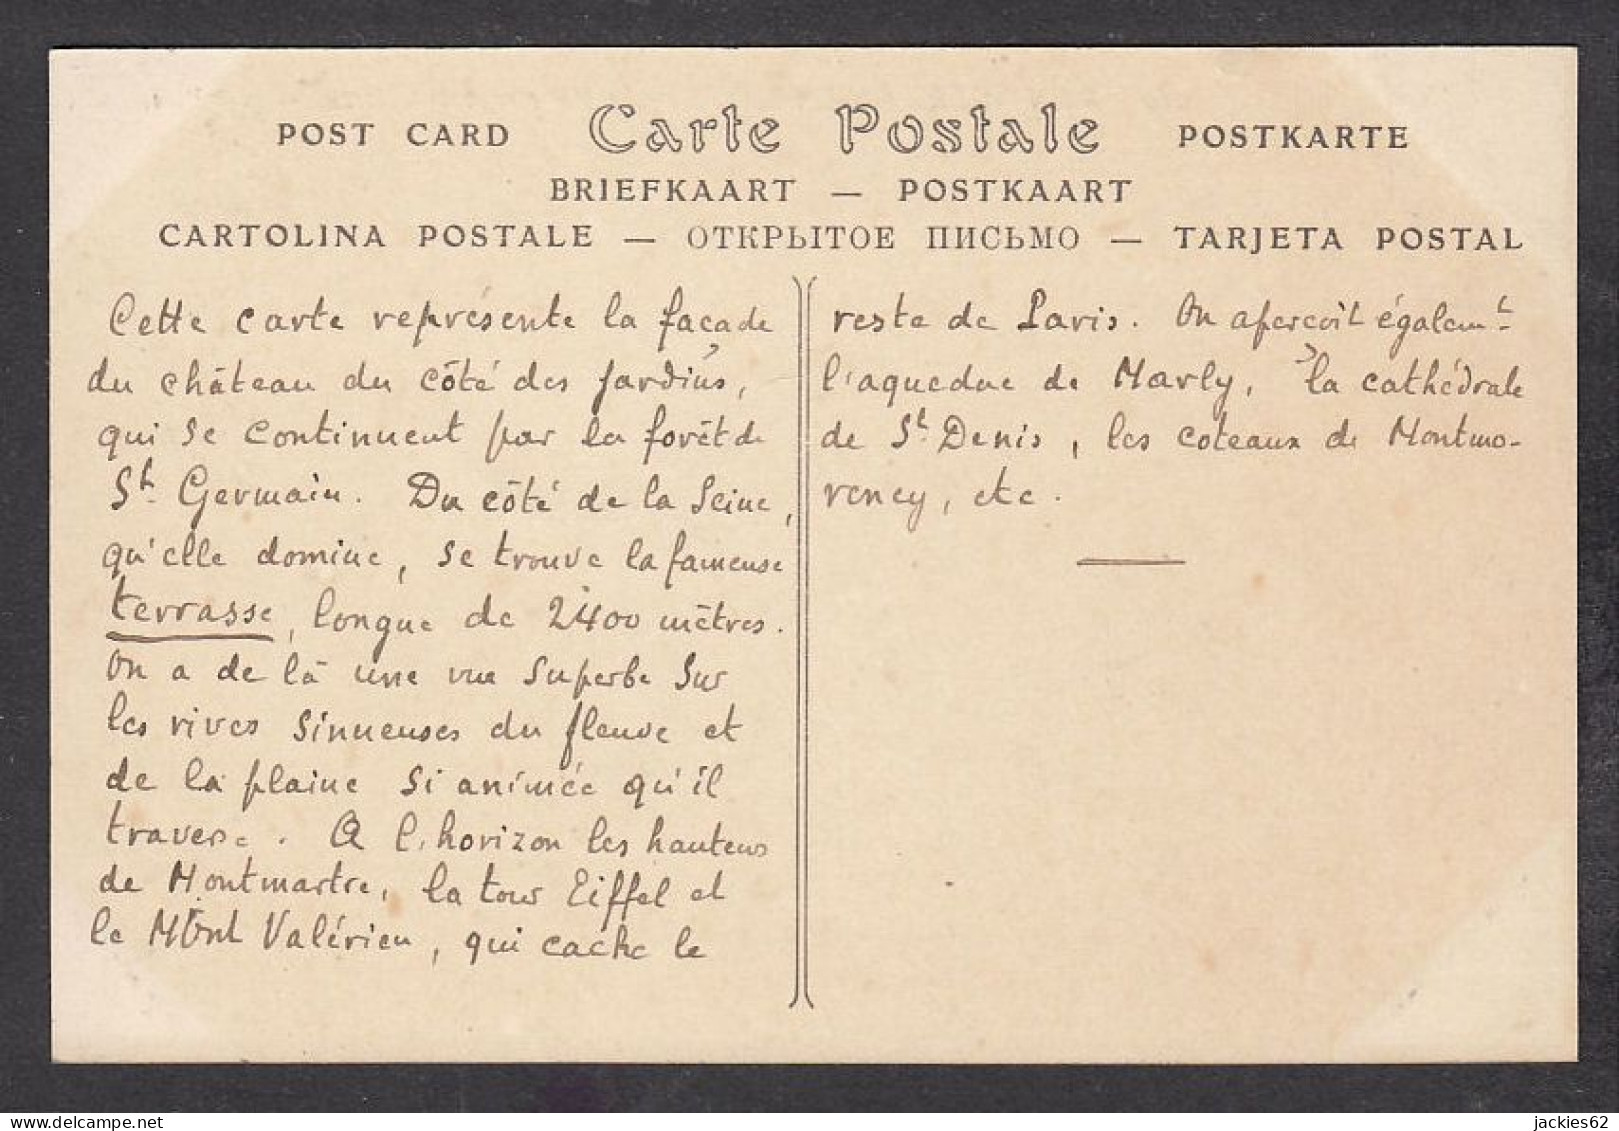 POST CARD Carte Postale POSTKARTE
BRIEFKAART — POSTKAART
CARTOLINA POSTALE — ОТКРЫТОЕ ПИСЬМО — TARJETA POSTAL
Cette carte représente la façade
du château du côté des jardins,
qui se continuent par la forêt de
St. Germain. Du côté de la Seine,
qu'elle domine, se trouve la fameuse
terrasse, longue de 2400 mètres.
On a de là une vue superbe sur
les rives sinueuses du fleuve et
de la plaine si animée qu'il
traverse. A l'horizon les hauteurs
de Montmartre, la tour Eiffel et
le Mont Valérien, qui cache le
reste de Paris. On aperçoit égalemt.
l'aqueduc de Marly, la cathédrale
de St. Denis, les coteaux de Montmo-
rency, etc.
jackies62